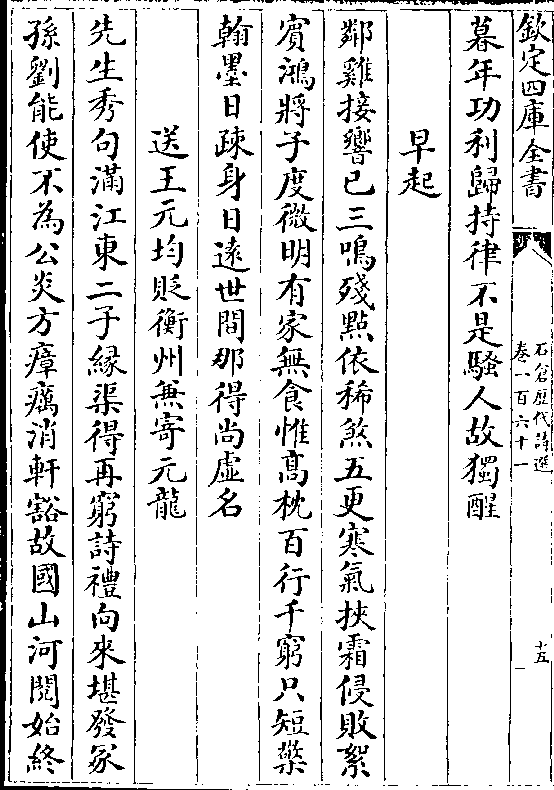 欽定四庫全書
石倉歷代詩選
卷一百六十一
十五
暮年功利歸持律不是騷人故獨醒
早起
鄰雞接響已三鳴殘點依稀煞五更寒氣挾霜侵敗絮
賓鴻將子度微明有家無食惟高枕百行千窮只短檠
翰墨日疎身日遠世間那得尚虛名
送王元均貶衡州兼寄元龍
先生秀句滿江東二子縁渠得再窮詩禮向來堪發冢
孫劉能使不為公炎方瘴癘消軒豁故國山河閲始終